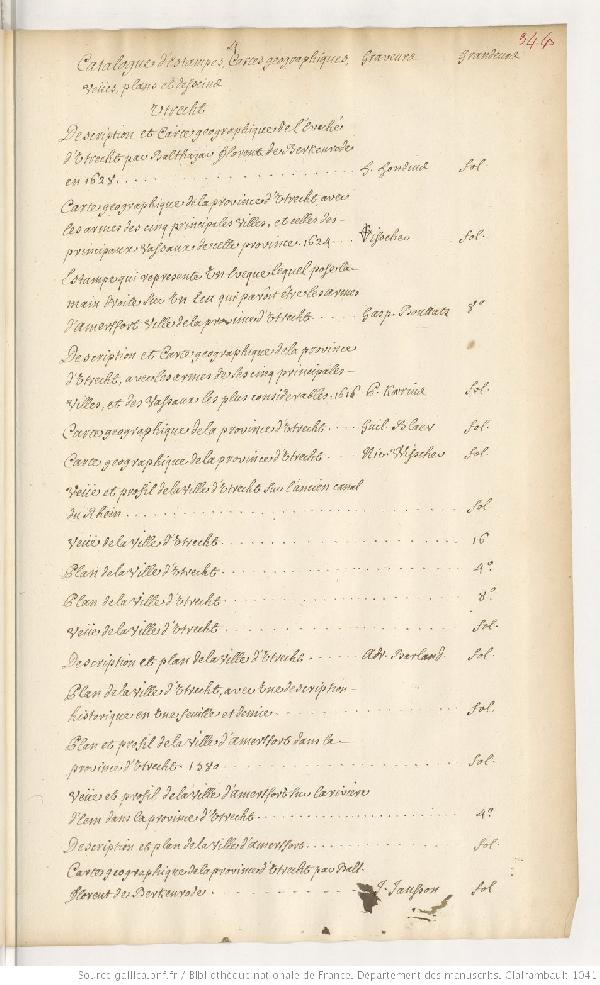 4
346
Catalogue d'estampes, Cartes geographiques, Graveurs Grandeurs
Veües, plans et desseins
Utrecht
Description et Carte geographique de l'Evêché
d'Utrecht par Balthazar Florent de Berkenrode
en 1628. H. Hondius fol.
Carte geographique de la province d'Utrecht avec
les armes des cinq principales Villes, et celles des
principaux Vassaux de celle province 1624. Visscher fol.
l'estampe qui represente Un Eveque lequel pose la
main droite sur Un Ecu qui paroit être les armes
d'amersfort Ville de la province d'Utrecht Gasp. Bouttats 8º
Description et Carte geographique de la province
d'Utrecht, avec les armes de ses cinq principales
Villes, et des Vassaux les plus considerables. 1616 P. Karius fol.
Carte geographique de la province d'Utrecht Guil. Blaev fol.
Carte geographique de la province d'Utrecht Nic. Visscher fol.
Veüe et profil de la Ville d'Utrecht sur l'ancien canal
du Rhein fol
Veüe de la Ville d'Utrecht 16
Plan de la Ville d'Utrecht 4º
Plan de la Ville d'Utrecht 8º
Veüe de la Ville d'Utrecht fol.
Description et plan de la Ville d'Utrecht Adr. Barland fol.
Plan de la Ville d'Utrecht, avec Une description
historique en Une feuille et demie fol.
Plan et profil de la Ville d'amersfort dans la
province d'Utrecht 1580 fol.
Veüe et profil de la Ville d'amersfort sur la riviere
d'Eem dans la province d'Utrecht 4º
Description et plan de la Ville d'amersfort fol.
Carte geographique de la province d'Utrecht par Balt.
Florent de Berkenrode J. Jansson fol
Source gallica.bnf.fr / Bibliothèque nationale de France. Département des manuscrits. Clairambault 1041